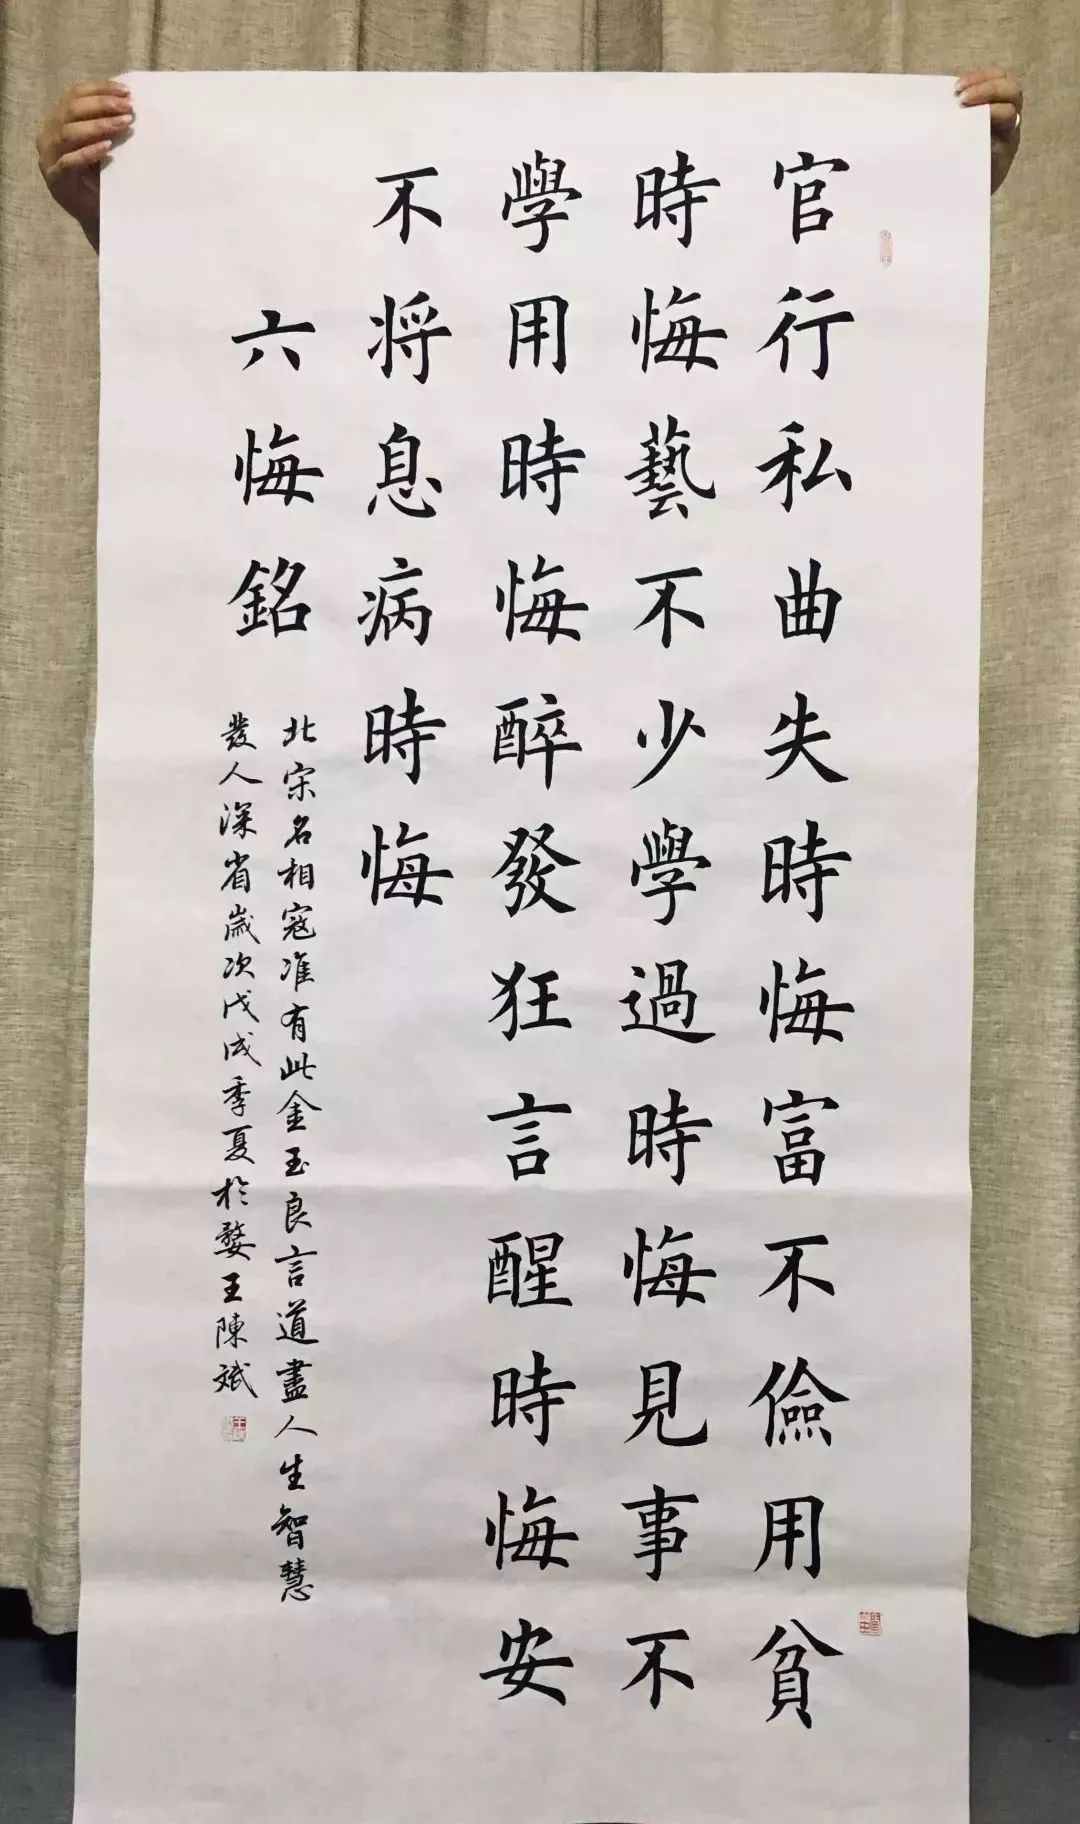 官行私曲失時悔富不儉用貧
時悔藝不少學過時悔見事不
學用時悔醉發狂言醒時悔安
不将息病時悔
六悔銘
北宋名相寇準有此金玉良言道盡人生智慧
發人深省歲次戊戌季夏於婺王陳斌